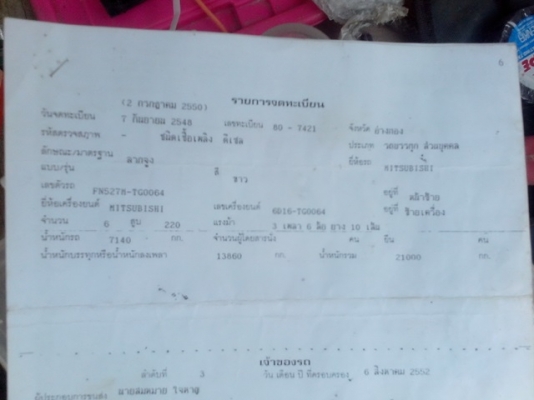 6
(2 กรกฎาคม 2550) รายการจดทะเบียน
วันจดทะเบียน 7 กันยายน 2548 เลขทะเบียน 80 - 7421 จังหวัด อ่างทอง
รหัสตรวจสภาพ - ชนิดเชื้อเพลิง ดีเซล ประเภท รถบรรทุก ส่วนบุคคล
ลักษณะ/มาตรฐาน ลากจูง ยี่ห้อรถ MITSUBISHI
แบบ/รุ่น สี ขาว
เลขตัวรถ FN527M-TG0064 อยู่ที่
ยี่ห้อเครื่องยนต์ MITSUBISHI เลขเครื่องยนต์ 6D16-TG0064 อยู่ที่ ซ้ายเครื่อง
จำนวน 6 สูบ 220 แรงม้า 3 เพลา 6 ล้อ ยาง 10 เส้น
น้ำหนักรถ 7140 กก. จำนวนผู้โดยสารนั่ง คน ยืน คน
น้ำหนักบรรทุกหรือน้ำหนักลงเพลา 13860 กก. น้ำหนักรวม 21000 กก.
เจ้าของรถ
ลำดับที่ 3 วัน เดือน ปี ที่ครอบครอง 6 สิงหาคม 2552
ผู้ประกอบการขนส่ง นายสมหมาย